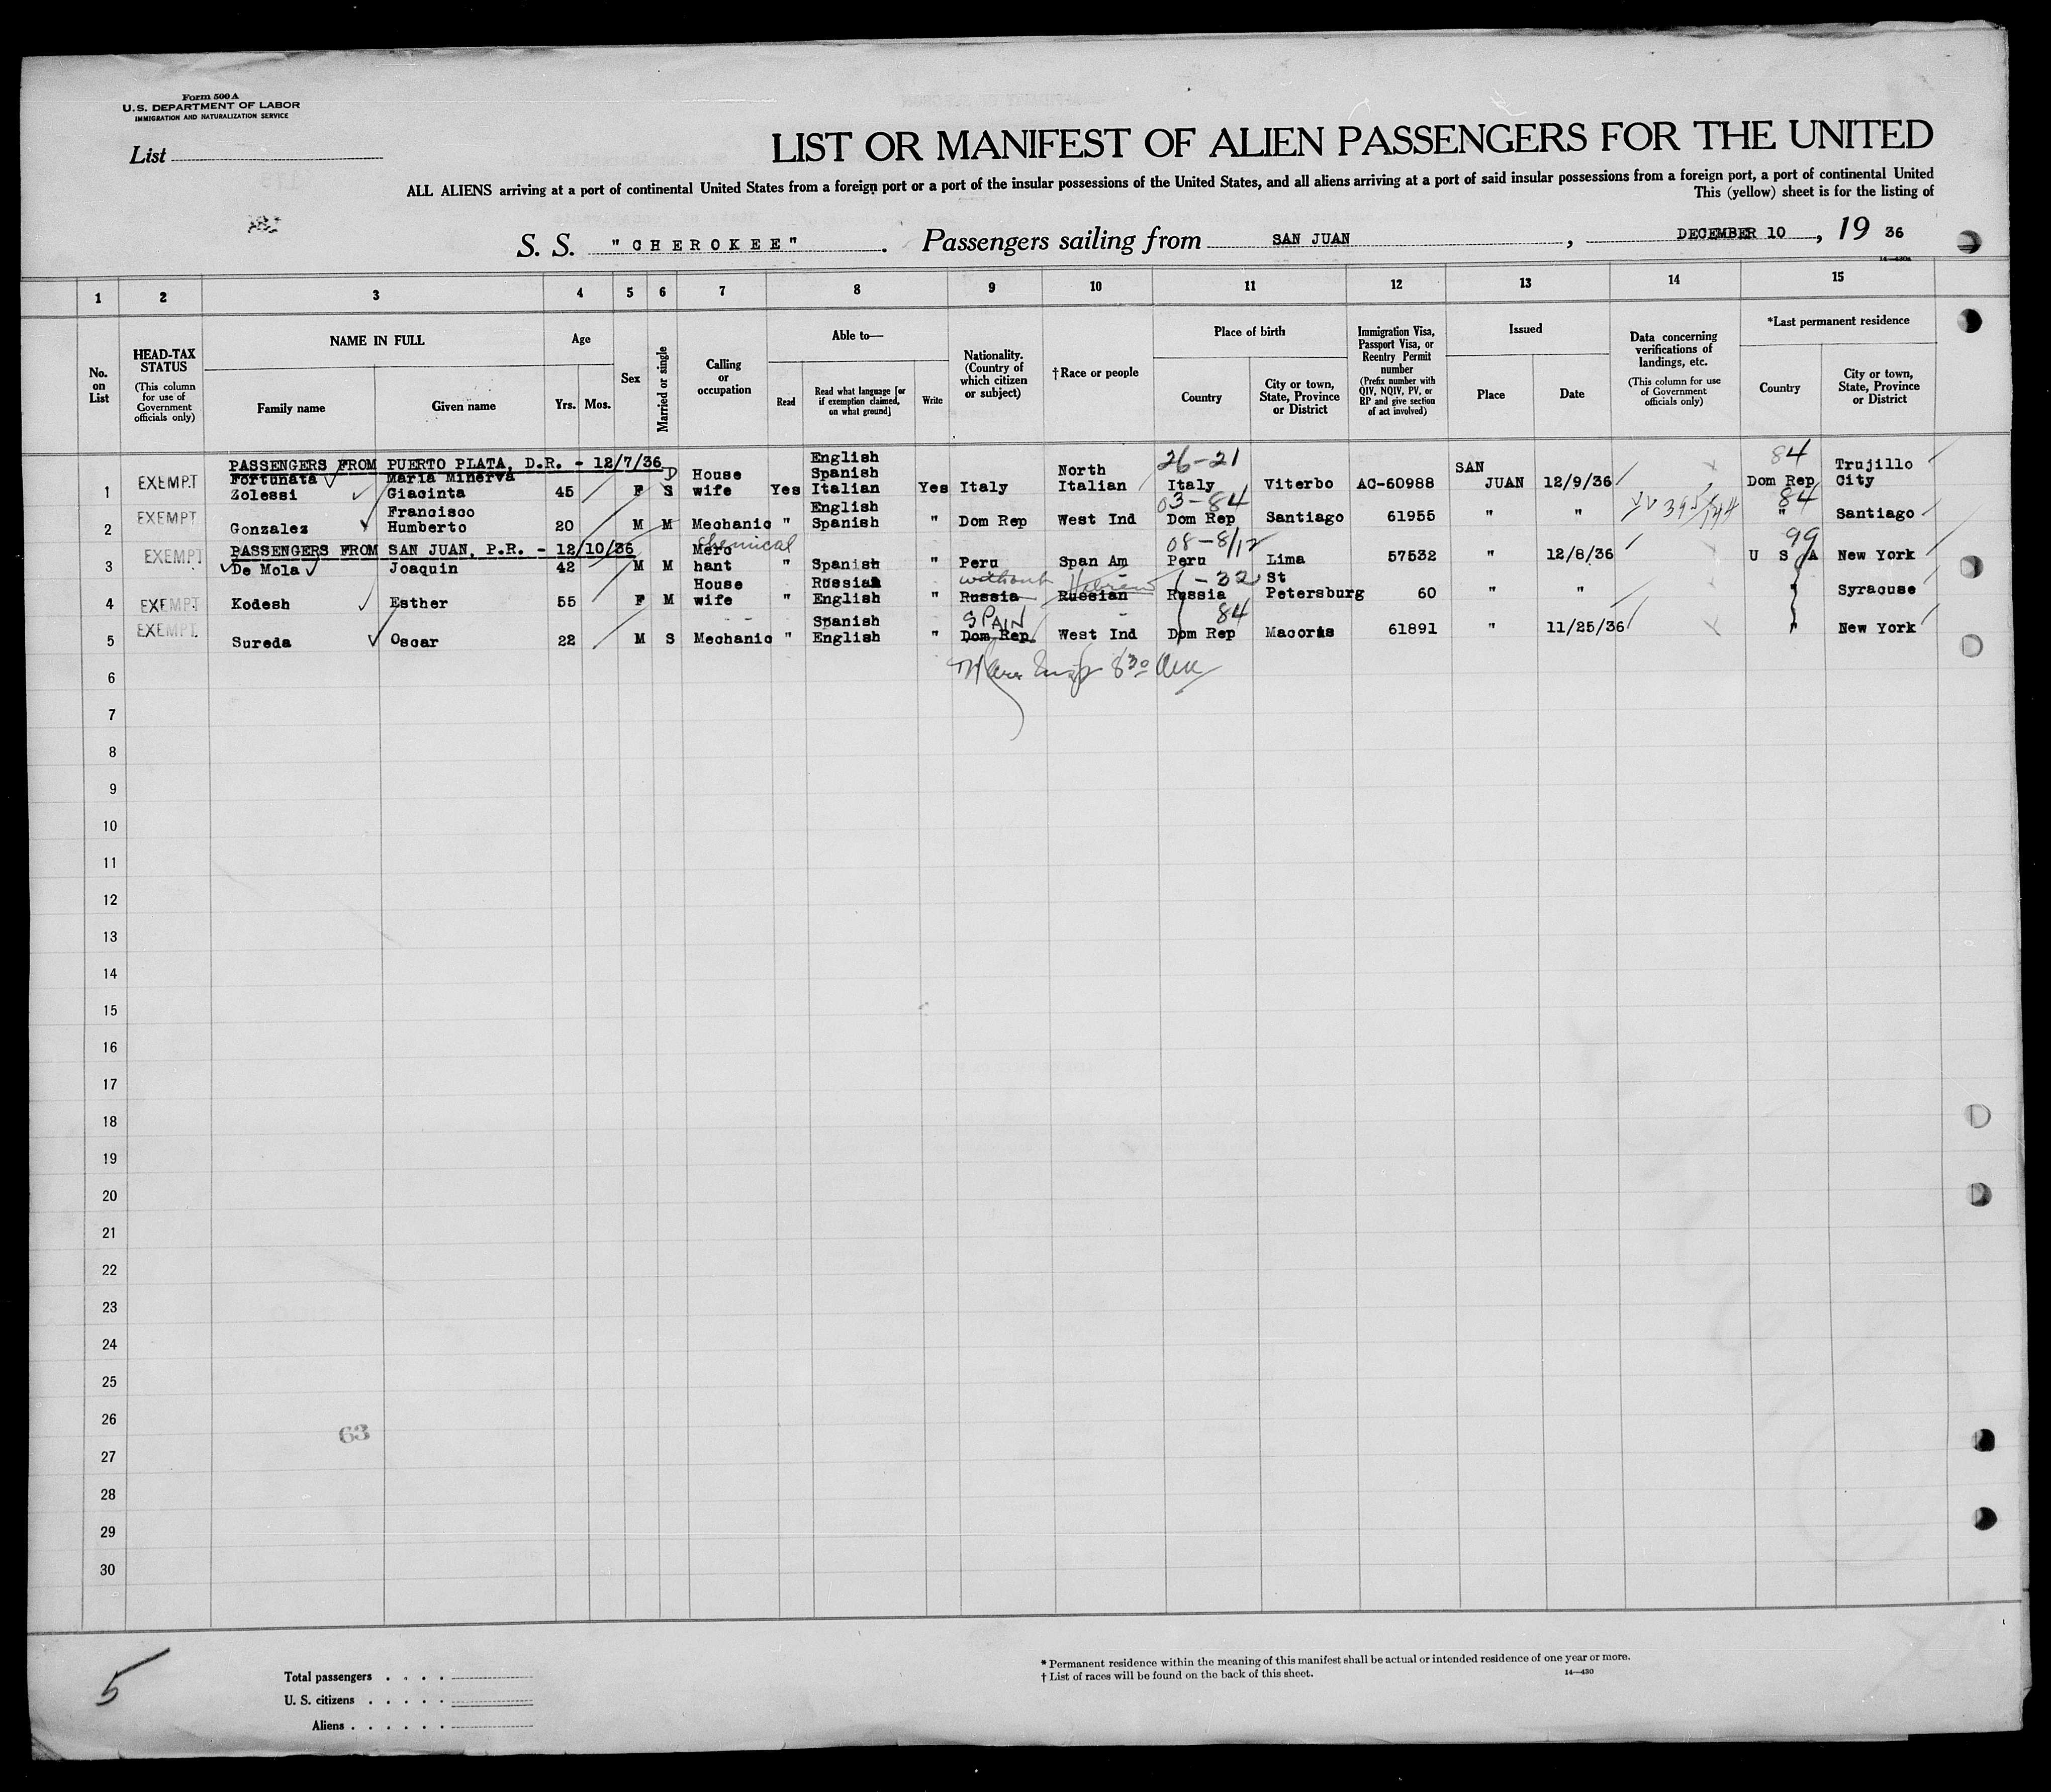 Form 500 A
U.S. DEPARTMENT OF LABOR
IMMIGRATION AND NATURALIZATION SERVICE
List
LIST OR MANIFEST OF ALIEN PASSENGERS FOR THE UNITED
ALL ALIENS arriving at a port of continental United States from a foreign port or a port of the insular possessions of the United States, and all aliens arriving at a port of said insular possessions from a foreign port, a port of continental United
This (yellow) sheet is for the listing of
S. S. "CHEROKEE". Passengers sailing from SAN JUAN, DECEMBER 10, 19 36
14—430a
1 2 3 4 5 6 7 8 9 10 11 12 13 14 15
No. on List
HEAD-TAX STATUS
(This column for use of Government officials only)
NAME IN FULL
Family name
Given name
Age
Yrs.
Mos.
Sex
Married or single
Calling or occupation
Able to—
Read
Read what language [or if exemption claimed, on what ground]
Write
Nationality. (Country of which citizen or subject)
†Race or people
Place of birth
Country
City or town, State, Province or District
Immigration Visa, Passport Visa, or Reentry Permit number
(Prefix number with QIV, NQIV, PV, or RP and give section of act involved)
Issued
Place
Date
Data concerning verifications of landings, etc.
(This column for use of Government officials only)
*Last permanent residence
Country
City or town, State, Province or District
PASSENGERS FROM PUERTO PLATA, D.R. - 12/7/36
1 EXEMPT Fortunata Zolessi Maria Minerva Giacinta 45 F S D House wife Yes English Spanish Italian Yes Italy North Italian 26-21 Italy Viterbo AC-60988 SAN JUAN 12/9/36 84 Dom Rep Trujillo City
2 EXEMPT Gonzalez Francisco Humberto 20 M M Mechanic " English Spanish " Dom Rep West Ind 03-84 Dom Rep Santiago 61955 " " 84 " Santiago
PASSENGERS FROM SAN JUAN, P.R. - 12/10/36
3 EXEMPT De Mola Joaquin 42 M M Merc hant chemical " Spanish " Peru Span Am 08-8/12 Peru Lima 57532 " 12/8/36 99 U S A New York
4 EXEMPT Kodesh Esther 55 F M House wife " Russian English " without Russia Hebrew Russian -32 Russia St Petersburg 60 " " " Syracuse
5 EXEMPT Sureda Oscar 22 M S Mechanic " Spanish English " SPAIN Dom Rep West Ind 84 Dom Rep Macoris 61891 " 11/25/36 " New York
6
7
8
9
10
11
12
13
14
15
16
17
18
19
20
21
22
23
24
25
26
63
27
28
29
30
5
Total passengers
U. S. citizens
Aliens
* Permanent residence within the meaning of this manifest shall be actual or intended residence of one year or more.
† List of races will be found on the back of this sheet.
14—430